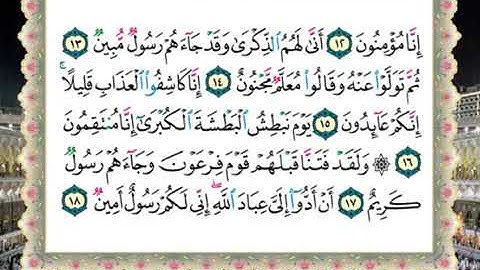 إِنَّا مُؤْمِنُونَ ١٢ أَنَّىٰ لَهُمُ الذِّكْرَىٰ وَقَدْ جَاءَهُمْ رَسُولٌ مُّبِينٌ ١٣
ثُمَّ تَوَلَّوْا عَنْهُ وَقَالُوا مُعَلَّمٌ مَّجْنُونٌ ١٤ إِنَّا كَاشِفُوا الْعَذَابِ قَلِيلًا ۚ
إِنَّكُمْ عَائِدُونَ ١٥ يَوْمَ نَبْطِشُ الْبَطْشَةَ الْكُبْرَىٰ إِنَّا مُنتَقِمُونَ
١٦ ۞ وَلَقَدْ فَتَنَّا قَبْلَهُمْ قَوْمَ فِرْعَوْنَ وَجَاءَهُمْ رَسُولٌ
كَرِيمٌ ١٧ أَنْ أَدُّوا إِلَيَّ عِبَادَ اللَّهِ ۖ إِنِّي لَكُمْ رَسُولٌ أَمِينٌ ١٨